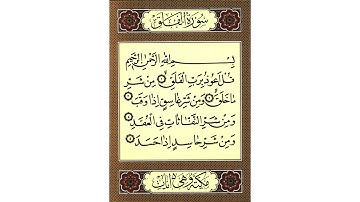 سورة الفلق
بسم الله الرحمن الرحيم
قل أعوذ برب الفلق ۝ من شر
ما خلق ۝ ومن شر غاسق إذا وقب ۝
ومن شر النفاثات في العقد ۝
ومن شر حاسد إذا حسد ۝
مكية وهي آيات